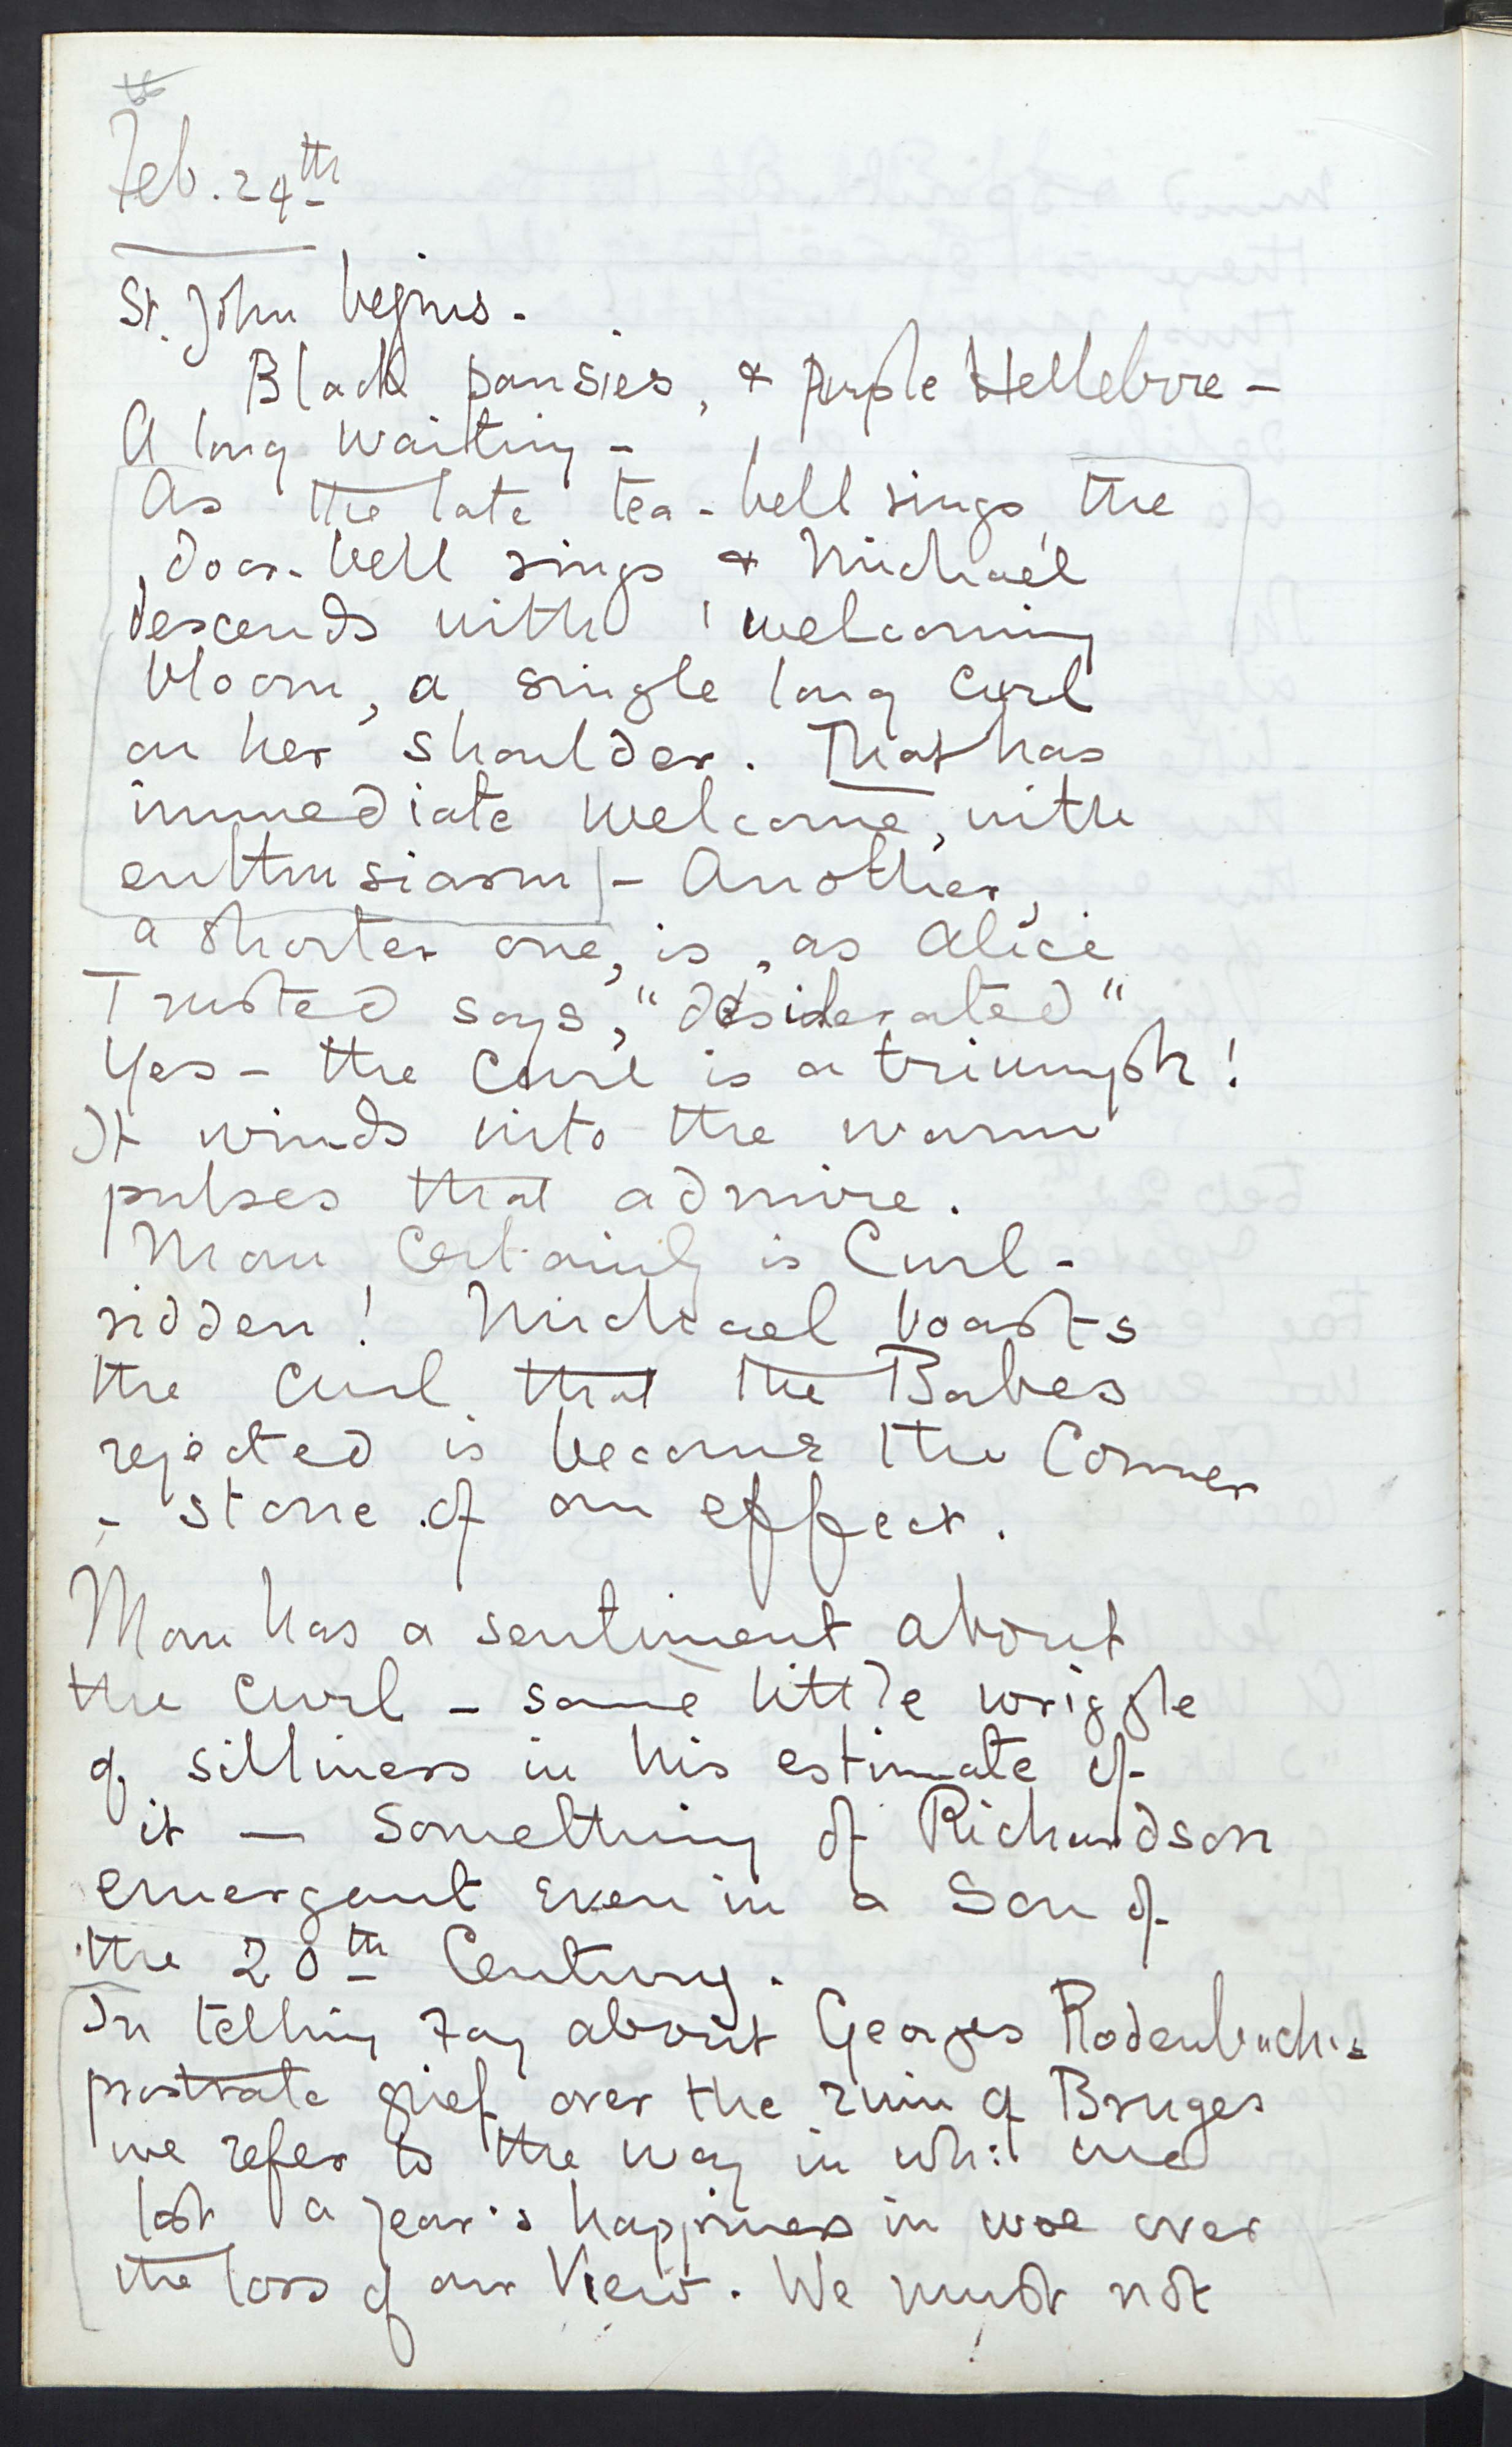 Feb. 24th
St. John begins.
Black pansies, & purple Hellebore -
A long waiting -
As the late tea-bell rings, the
door-bell rings & Michael
descends with welcoming
bloom, a single long curl
on her shoulder. That has
immediate welcome, with
enthusiasm - Another,
a shorter one, is, as Alice
Trusted says, "desiderated"
Yes - the Curl is a triumph!
It winds into the warm
pulses that admire.
Man Certainly is Curl-
ridden! Michael boasts
the Curl that the Babes
rejected is become the Corner
- stone of an effect.
Man has a sentiment about
the curl - some little wriggle
of silliness in his estimate of
it - Something of Richardson
emergant even in a Son of
the 20th Century.
In telling Fay about Georges Rodenbach's
prostrate grief over the ruin of Bruges
we refer to the way in wh: we
lost a year's happiness in woe over
the loss of our View. We must not